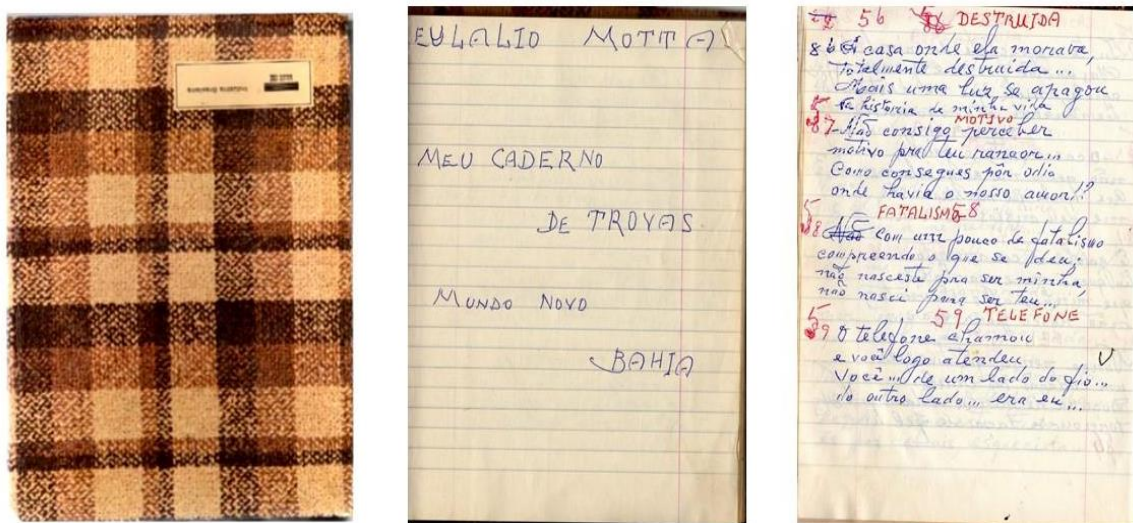 Indústria Brasileira
EULALIO MOTTA
MEU CADERNO
DE TROVAS
MUNDO NOVO
BAHIA
56 DESTRUIDA
A casa onde ela morava,
totalmente destruida...
Mais uma luz se apagou
na historia de minha vida
MOTIVO
87- Não consigo perceber
motivo pra teu rancor...
Como consegues pôr odio
onde havia o nosso amor!?
FATALISMO 58
Com um pouco de fatalismo
compreendo o que se deu;
não nasceste pra ser minha,
não nasci para ser teu...
59 TELEFONE
O telefone chamou
e você logo atendeu
Você... de um lado do fio...
do outro lado... era eu...